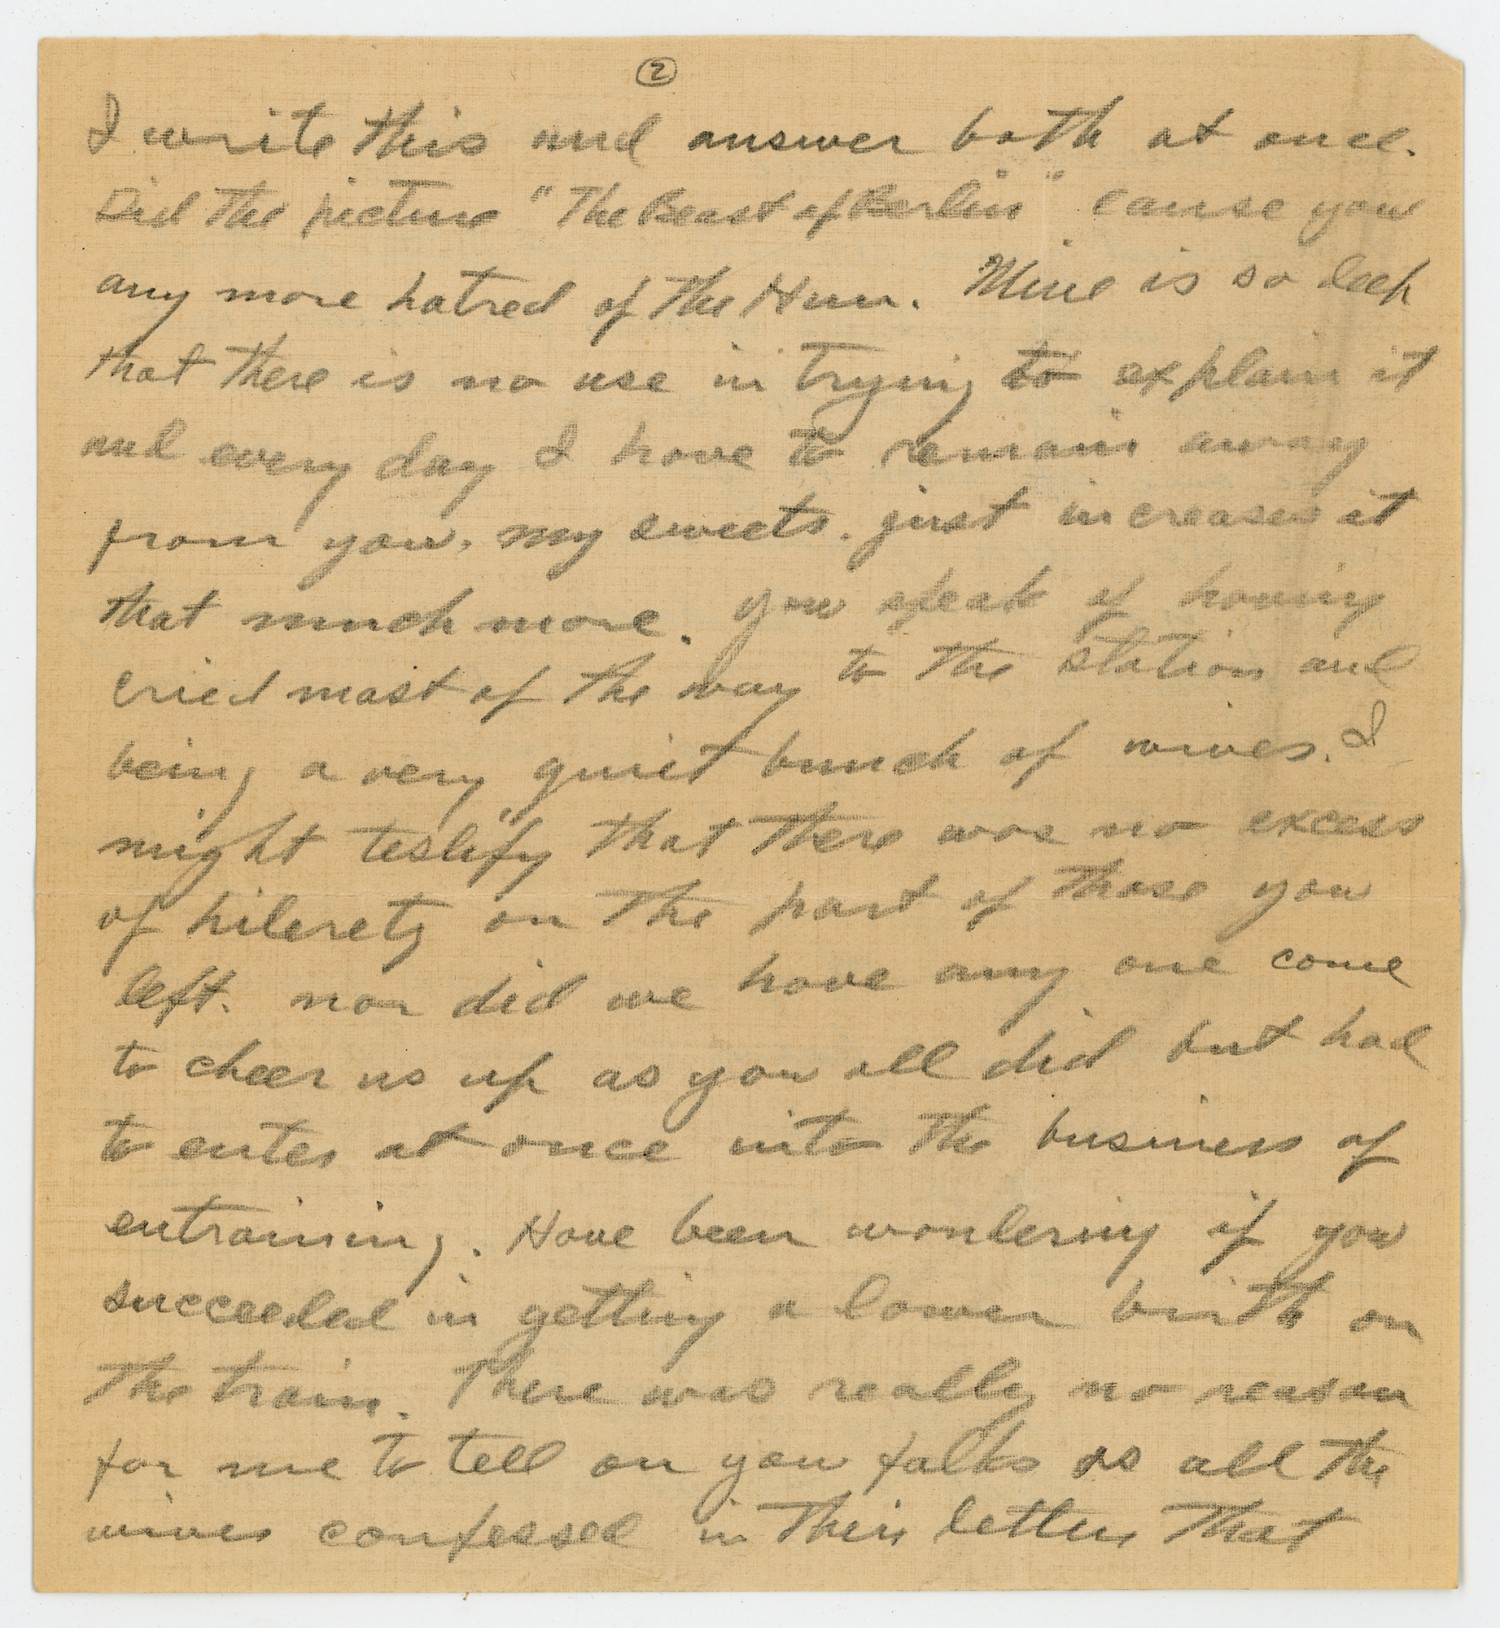 2
I write this and answer both at once.
Did the picture "The Beast of Berlin" cause you
any more hatred of the Hun. Mine is so deep
that there is no use in trying to explain it
and every day I have to remain away
from you, my sweets. just increases it
that much more. You speak of having
cried most of the way to the station and
being a very quiet bunch of wives. I
might testify that there was no excess
of hilerety on the part of those you
left. nor did we have any one come
to cheer us up as you all did but had
to enter at once into the business of
entraining. Have been wondering if you
succeeded in getting a lower birth on
the train. There was really no reason
for me to tell on you folks as all the
wives confessed in their letters that